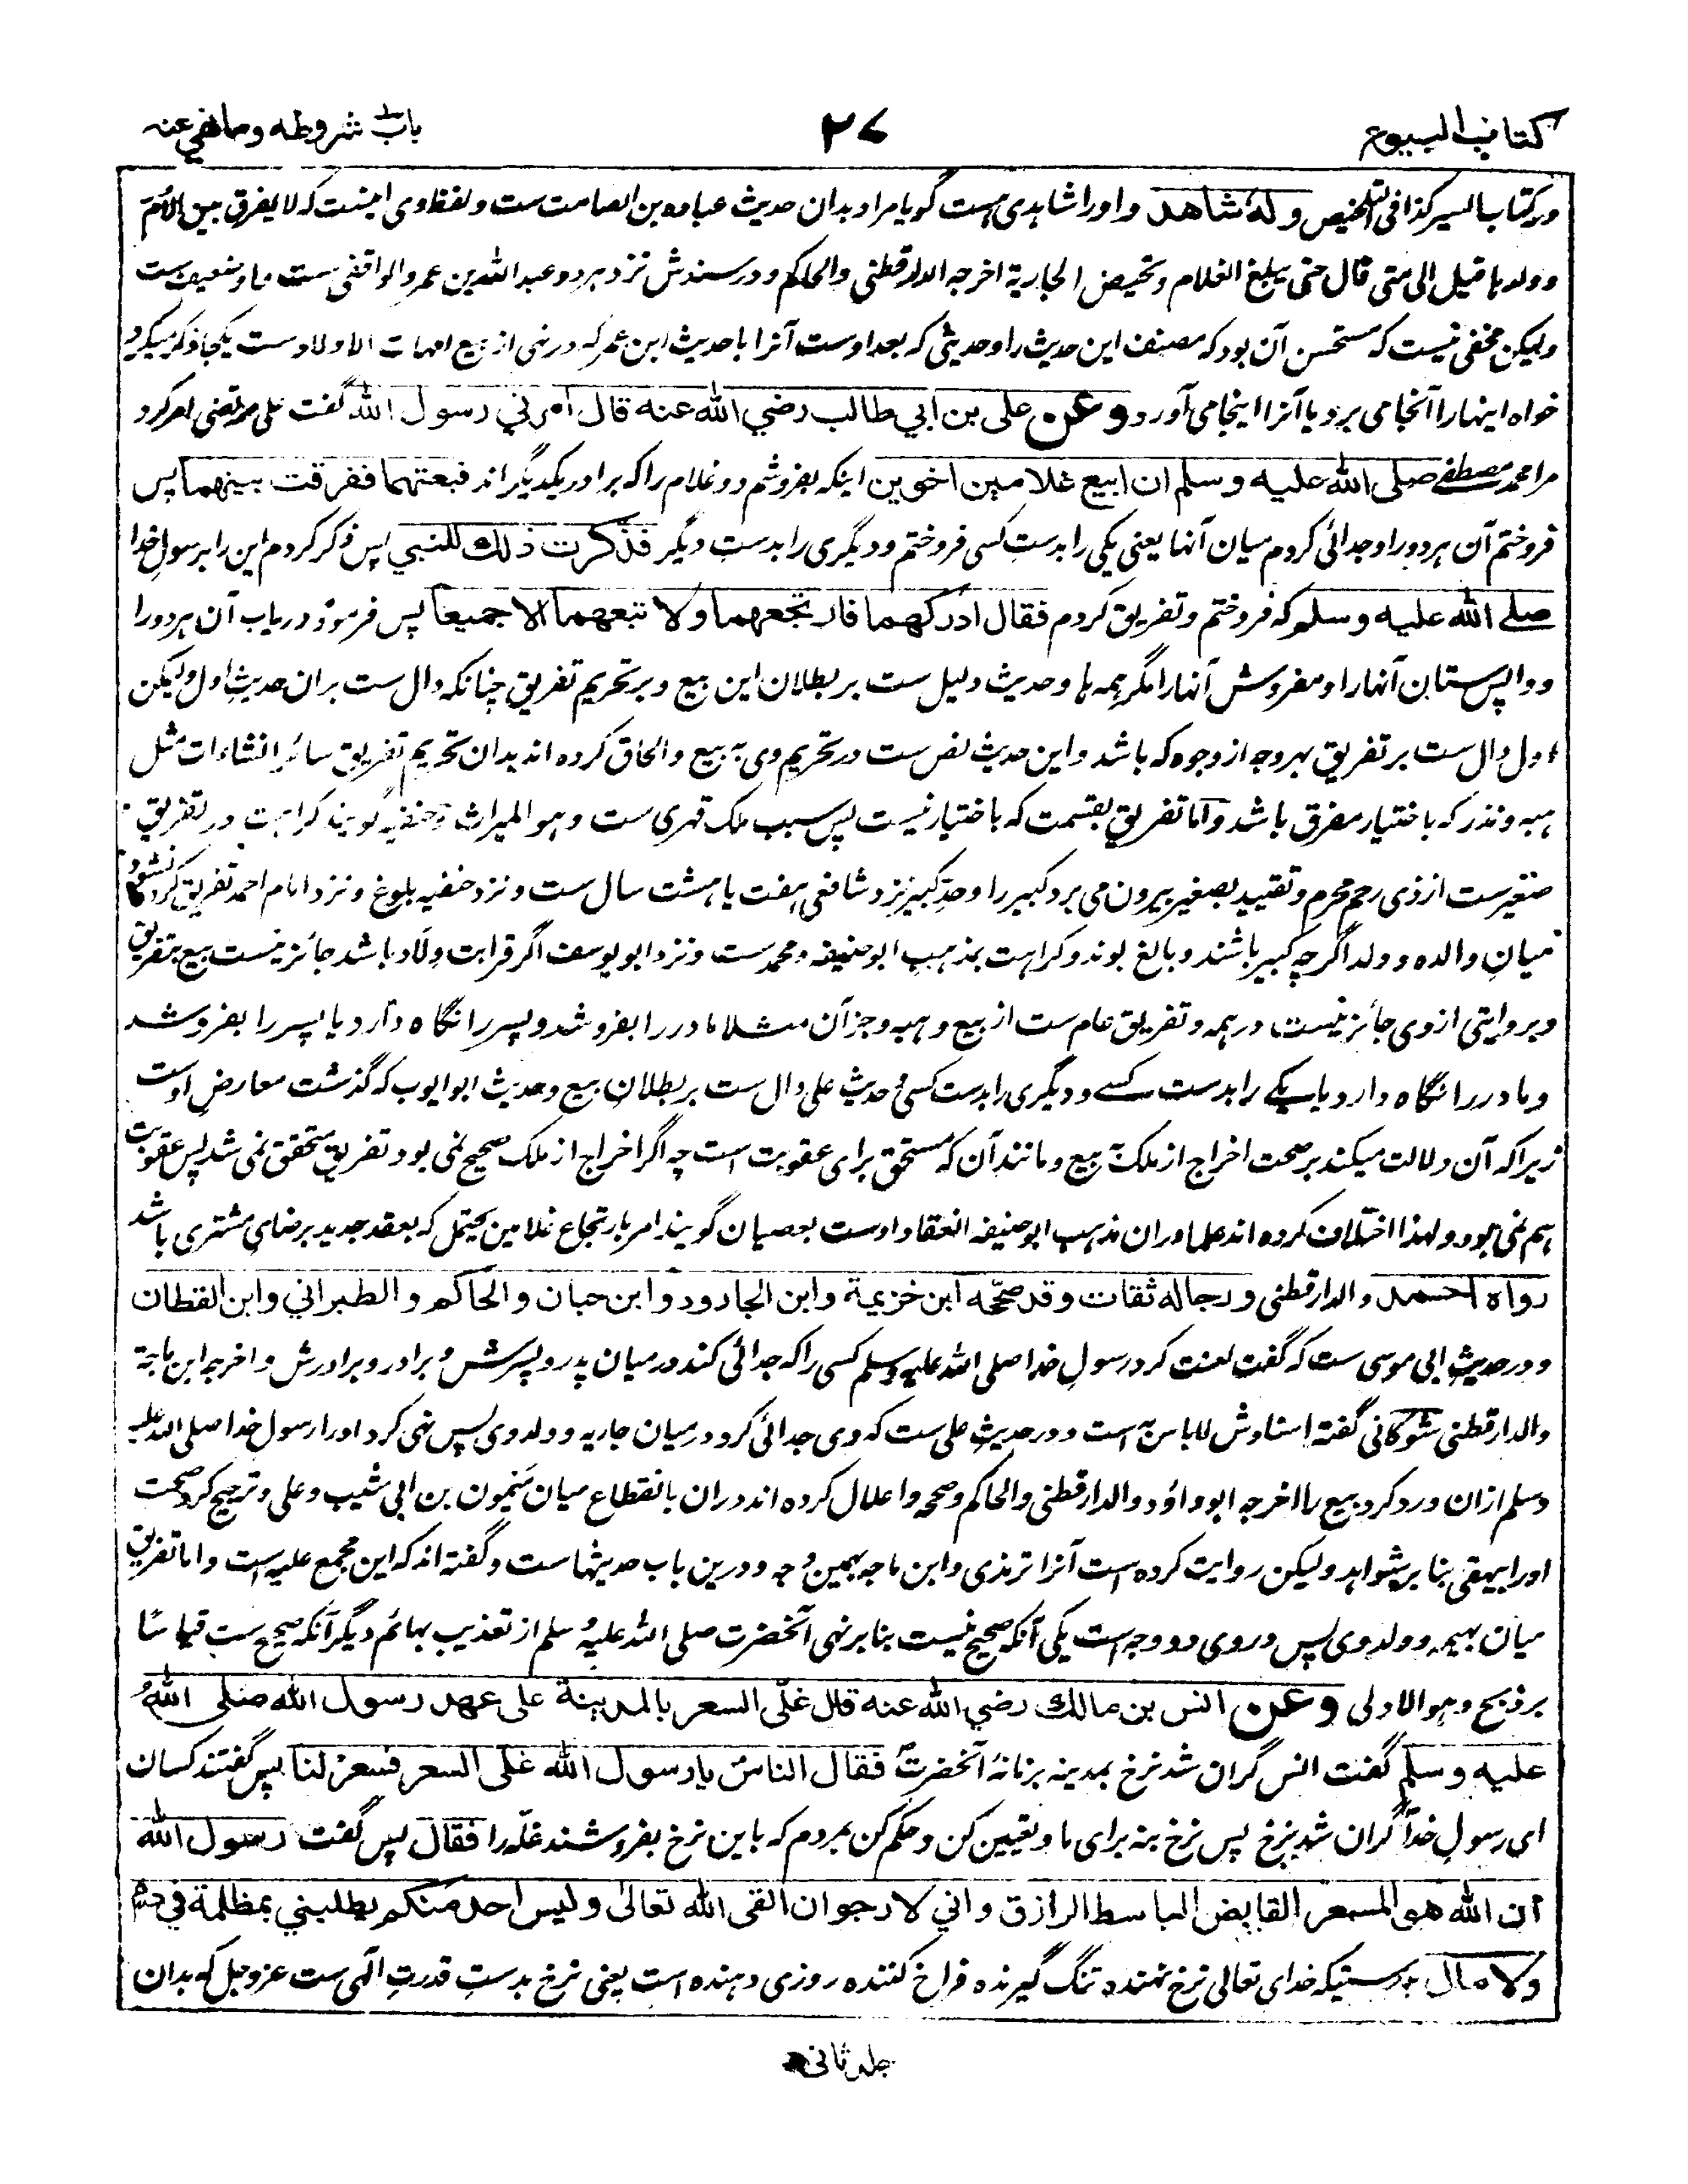 کتاب البیوع
۲۷
باب شروطه وما نهی عنه
در کتاب السیر کذا فی التلخیص وله شاهد واورا شاهدی هست گویا مراد بدان حدیث عباده بن الصامت ست ولفظ وی اینست که لا یفرق بین الأم
وولدها قیل الی متی قال حتی یبلغ الغلام وتحیض الجاریة اخرجه الدارقطنی والحاکم ودر سندش نزد هر دو عبدالله بن عمرو الواقفی ست واو ضعیف ست
ولیکن مخفی نیست که مستحسن آن بود که مصنف این حدیث را وحدیثی که بعد اوست آنرا با حدیث ابن عمر که در نهی از بیع امهات الاولاد ست یکجا ذکر میکرد
خواه اینها را آنجا می برد یا آنرا اینجا می آورد وعن علی بن ابي طالب رضي الله عنه قال امرني رسول الله گفت علی مرتضی امر کرد
مرا محمد مصطفے صلی الله علیه وسلم ان ابیع غلامین اخوین اینکه بفروشم دو غلام را که برادر یکدیگر اند فبعتهما ففرقت بینهما پس
فروختم آن هر دو را وجدائی کردم میان آنها یعنی یکی را بدست کسی فروختم ودیگری را بدست دیگر فذکرت ذلك للنبي پس ذکر کردم این را برسول خدا
صلے الله علیه وسلم که فروختم وتفریق کردم فقال ادرکهما فارتجعهما ولا تبعهما الا جمیعا پس فرمود دریاب آن هر دو را
وواپس ستان آنها را ومفروش آنها را مگر همه ها وحدیث دلیل ست بر بطلان این بیع وبر تحریم تفریق چنانکه دال ست بران حدیث اول ولیکن
اول دال ست بر تفریق بهر وجه از وجوه که باشد واین حدیث نص ست در تحریم وی به بیع والحاق کرده اند بدان تحریم تفریق سائر انشاءات مثل
هبه ونذر که باختیار مفرق باشد واما تفریق بقسمت که باختیار نیست پس سبب ملک قهری ست وهو المیراث وحنفیه گویند کراهت در تفریق
صغیر ست از ذی رحم محرم وتقیید بصغیر بیرون می برد کبیر را وحد کبیر نزد شافعی هفت یا هشت سال ست ونزد حنفیه بلوغ ونزد امام احمد تفریق کرده نشود
میان والده وولد اگرچه کبیر باشند وبالغ بوند وکراهت بمذهب ابو حنیفه ومحمد ست ونزد ابو یوسف اگر قرابت ولاد باشد جائز نیست بیع بتفریق
وبروایتی از وی جائز نیست در همه وتفریق عام ست از بیع وهبه وجز آن مثلا مادر را بفروشد وپسر را نگاه دارد یا پسر را بفروشد
ومادر را نگاه دارد یا یکے را بدست کسے ودیگری را بدست کسی وحدیث علی دال ست بر بطلان بیع وحدیث ابو ایوب که گذشت معارض اوست
زیرا که آن دلالت میکند بر صحت اخراج از ملک به بیع ومانند آن که مستحق برای عقوبت است چه اگر اخراج از ملک صحیح نمی بود تفریق متحقق نمی شد پس عقوبت
هم نمی بود ولهذا اختلاف کرده اند علما دران مذهب ابو حنیفه انعقاد اوست بعصیان گویند امر بارتجاع غلامین یحتمل که بعقد جدید برضای مشتری باشد
رواه احمد والدارقطنی ورجاله ثقات وقد صححه ابن خزیمة وابن الجارود وابن حبان والحاکم والطبراني وابن القطان
ودر حدیث ابی موسی ست که گفت لعنت کرد رسول خدا صلی الله علیه وسلم کسی را که جدائی کند درمیان پدر وپسرش وبرادر وبرادرش واخرجه ابن ماجة
والدارقطنی شوکانی گفته اسنادش لاباس به است ودر حدیث علی ست که وی جدائی کرد درمیان جاریه وولد وی پس نهی کرد اورا رسول خدا صلی الله علیه
وسلم ازان ورد کرد بیع را اخرجه ابوداؤد والدارقطنی والحاکم وصححه واعلال کرده اند دران بانقطاع میان میمون بن ابی شبیب وعلی وترجیح کرد صحت
اورا بیهقی بنا بر شواهد ولیکن روایت کرده است آنرا ترمذی وابن ماجه بهمین وجه ودرین باب حدیثها ست وگفته اند که این مجمع علیه است واما تفریق
میان بهیمه وولد وی پس در وی دو وجه است یکی آنکه صحیح نیست بنابر نهی آنحضرت صلی الله علیه وسلم از تعذیب بهائم دیگر آنکه صحیح ست قیاسًا
بر ذبح وهو الاولی وعن انس بن مالك رضي الله عنه قال غلی السعر بالمدینة علی عهد رسول الله صلی الله
علیه وسلم گفت انس گران شد نرخ بمدینه بزمانهٔ آنحضرت فقال الناس یا رسول الله غلی السعر فسعر لنا پس گفتند کسان
ای رسول خدا گران شد نرخ پس نرخ بنه برای ما وتعیین کن وحکم کن بمردم که باین نرخ بفروشند غله را فقال پس گفت رسول الله
ان الله هو المسعر القابض الباسط الرازق واني لارجو ان القی الله تعالی ولیس احد منکم یطلبني بمظلمة في دم
ولا مال بدرستیکه خدای تعالی نرخ نهنده تنگ گیرنده فراخ کننده روزی دهنده است یعنی نرخ بدست قدرت الهی ست عز وجل که بدان
جلد ثانی